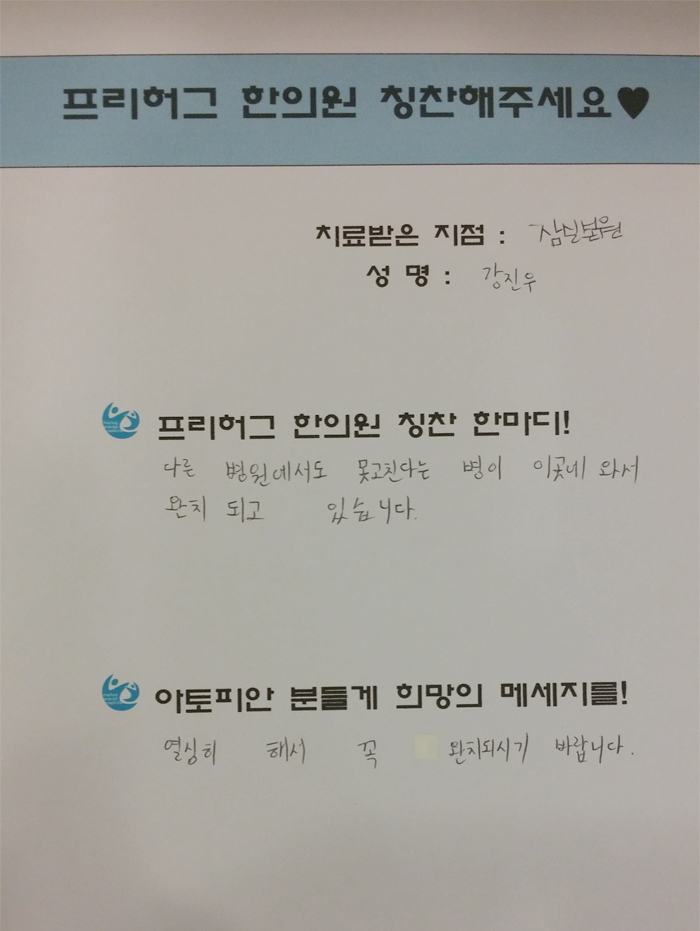 프리허그 한의원 칭찬해주세요♥
치료받은 지점 : 잠실본원
성 명 : 강진우
프리허그 한의원 칭찬 한마디!
다른 병원에서도 못고친다는 병이 이곳네 와서
완치 되고 있습니다.
아토피안 분들게 희망의 메세지를!
열심히 해서 꼭 완치되시기 바랍니다.